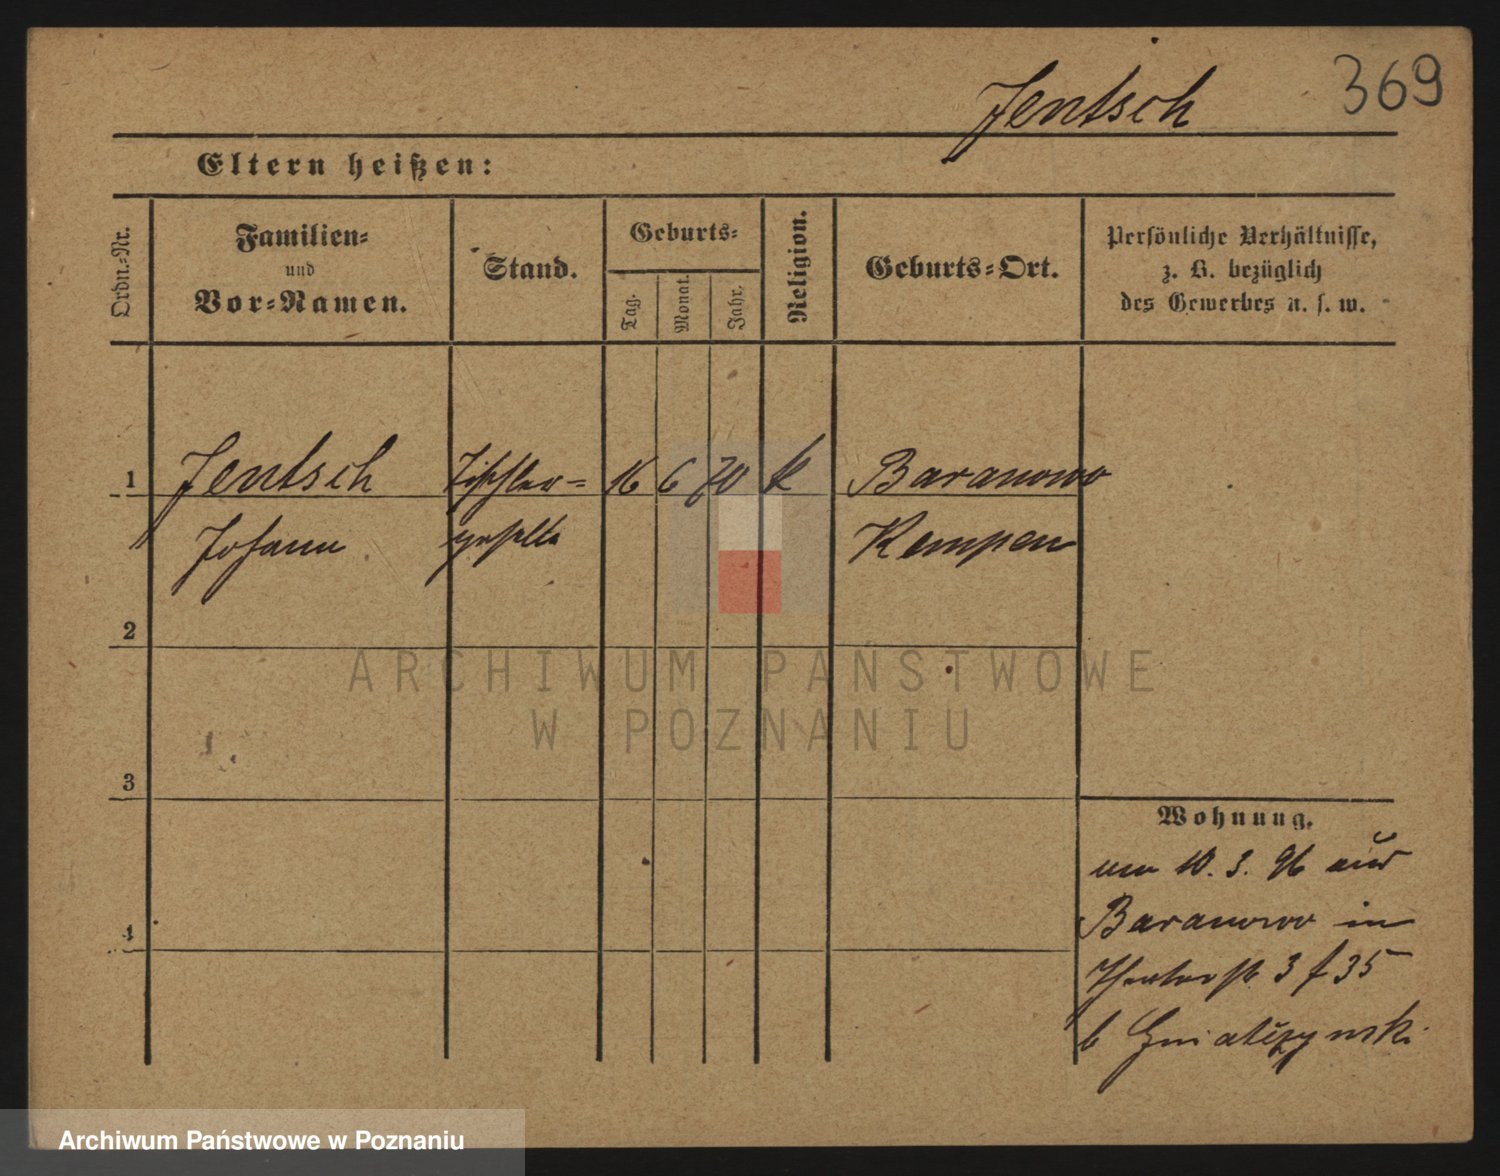 369
Jentsch
Eltern heißen:
Ordn.-Nr.
Familien-
und
Vor-Namen.
Stand.
Geburts-
Tag.
Monat.
Jahr.
Religion.
Geburts-Ort.
Persönliche Verhältnisse,
z. B. bezüglich
des Gewerbes u. s. w.
1
Jentsch Tischler- 16 6 70 k Baranowo
Johann geselle Kempen
2
3
4
Wohnung.
10. 3. 96 aus
Baranowo in
Theaterst 3 35
b
ARCHIWUM PAŃSTWOWE
W POZNANIU
Archiwum Państwowe w Poznaniu